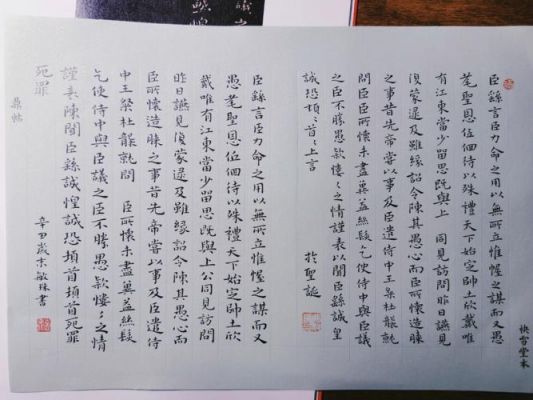 快雪堂本
臣繇言臣力命之用以無所立惟幄之謀而又愚
耄聖恩伍佪待以殊禮天下始定師土欣戴唯
有江東當少留思既與上 同見訪問昨日讌見
復蒙逯及雖緣詔令陳其愚心而臣所懷造膝
之事昔先帝嘗以事及臣遣侍中王粲杜襲就
問臣臣所懷未盡冀益絲髮乞使侍中與臣議
之臣不勝愚款悽々之情謹表以聞臣繇誠皇
誠恐頓々首々上言
於聖誕
臣繇言臣力命之用以無所立惟幄之謀而又
愚耄聖恩伍佪待以殊禮天下始定師土欣
戴唯有江東當少留思既與上公同見訪問
昨日讌見復蒙逯及雖緣詔令陳其愚心而
臣所懷造膝之事昔先帝嘗以事及臣遣侍
中王粲杜襲就問 臣所懷未盡冀益絲髮
乞使侍中與臣議之臣不勝愚款悽々之情
謹表陳聞臣繇誠惶誠恐頓首頓首死罪
死罪
鼎帖
辛丑歲宋敏珠書